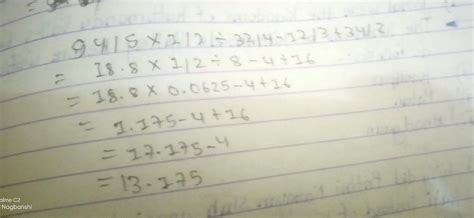 94/5 × 1/2 ÷ 32/4 - 12/3 + 34/2
= 18.8 × 1/2 ÷ 8 - 4 + 16
= 18.8 × 0.0625 - 4 + 16
= 1.175 - 4 + 16
= 17.175 - 4
= 13.175
alme C2
Nagbanshi